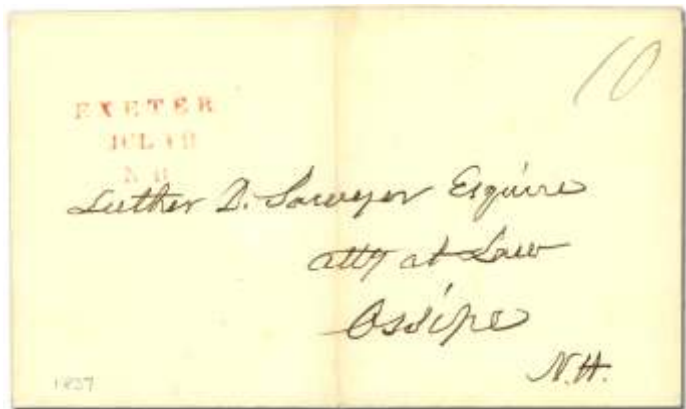 EXETER
JUL 18
N H
10
Luther D. Sawyer Esquire
atty at Law
Ossipe
N.H.
1837